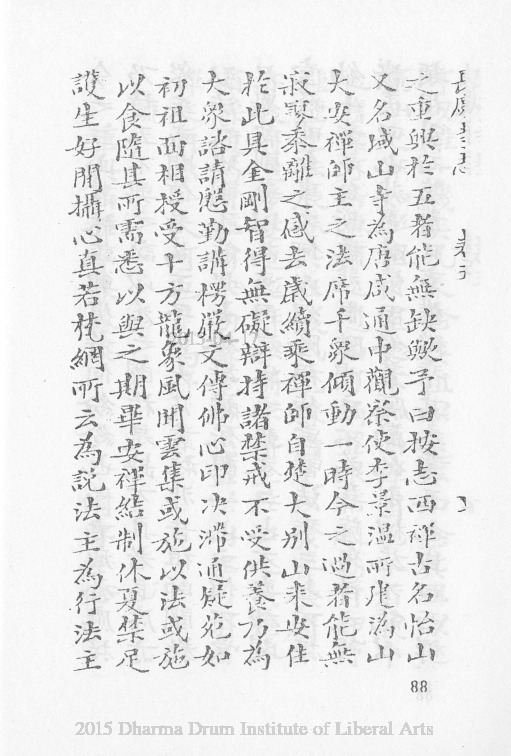 長慶寺志
之重興於五者能無缺歟予曰按志西禪古名怡山
又名城山寺為唐咸通中觀察使李景溫所建溈山
大安禪師主之法席千眾傾動一時今之過者能無
寂寥黍離之感去歲續乘禪師自楚大別山來安住
於此具金剛智得無礙辯持諸禁戒不受供養乃為
大眾諮請慇勤講楞嚴文傳佛心印決滯通疑宛如
初祖面相授受十方龍象風聞雲集或施以法或施
以食隨其所需悉以與之期畢安禪結制休夏禁足
護生好閒攝心真若梵網所云為說法主為行法主
88
2015 Dharma Drum Institute of Liberal Arts